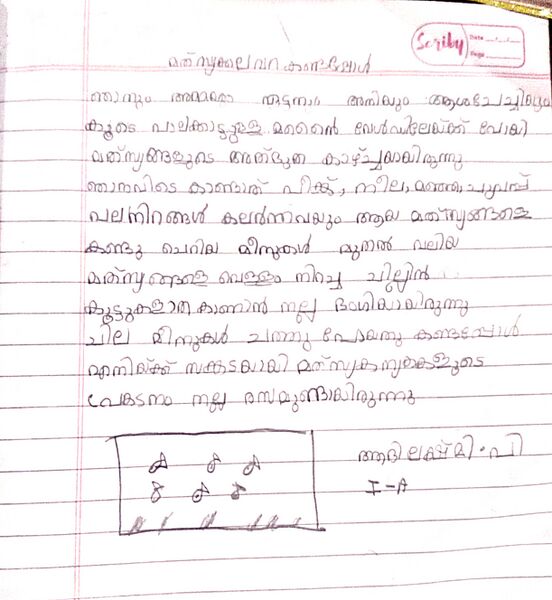 Scriby
Date
Page
മത്സ്യകലവറ കണ്ടപ്പോൾ
ഞാനും അമ്മയും ഏട്ടനും അനിയും ആശചേച്ചിയും
കൂടെ പാലക്കാട്ടുള്ള മറൈൻ വേൾഡിലേയ്ക്ക് പോയി
മത്സ്യങ്ങളുടെ അത്ഭുത കാഴ്ച്ചയായിരുന്നു
ഞാനവിടെ കാണാത് പിങ്ക്, നീല, മഞ്ഞ, ചുവപ്പ്
പലനിറങ്ങൾ കലർന്നവയും ആയ മത്സ്യങ്ങളെ
കണ്ടു ചെറിയ മീനുകൾ മുതൽ വലിയ
മത്സ്യങ്ങളെ വെള്ളം നിറച്ച ചില്ലിൻ
കൂട്ടുകളാത കാണാൻ നല്ല ഭംഗിയായിരുന്നു
ചില മീനുകൾ ചത്തു പോയതു കണ്ടപ്പോൾ
എനിയ്ക്ക് സങ്കടയായി മത്സ്യകന്യകകളുടെ
പ്രകടനം നല്ല രസമുണ്ടായിരുന്നു
ആദിലക്ഷ്മി.പി
I-A